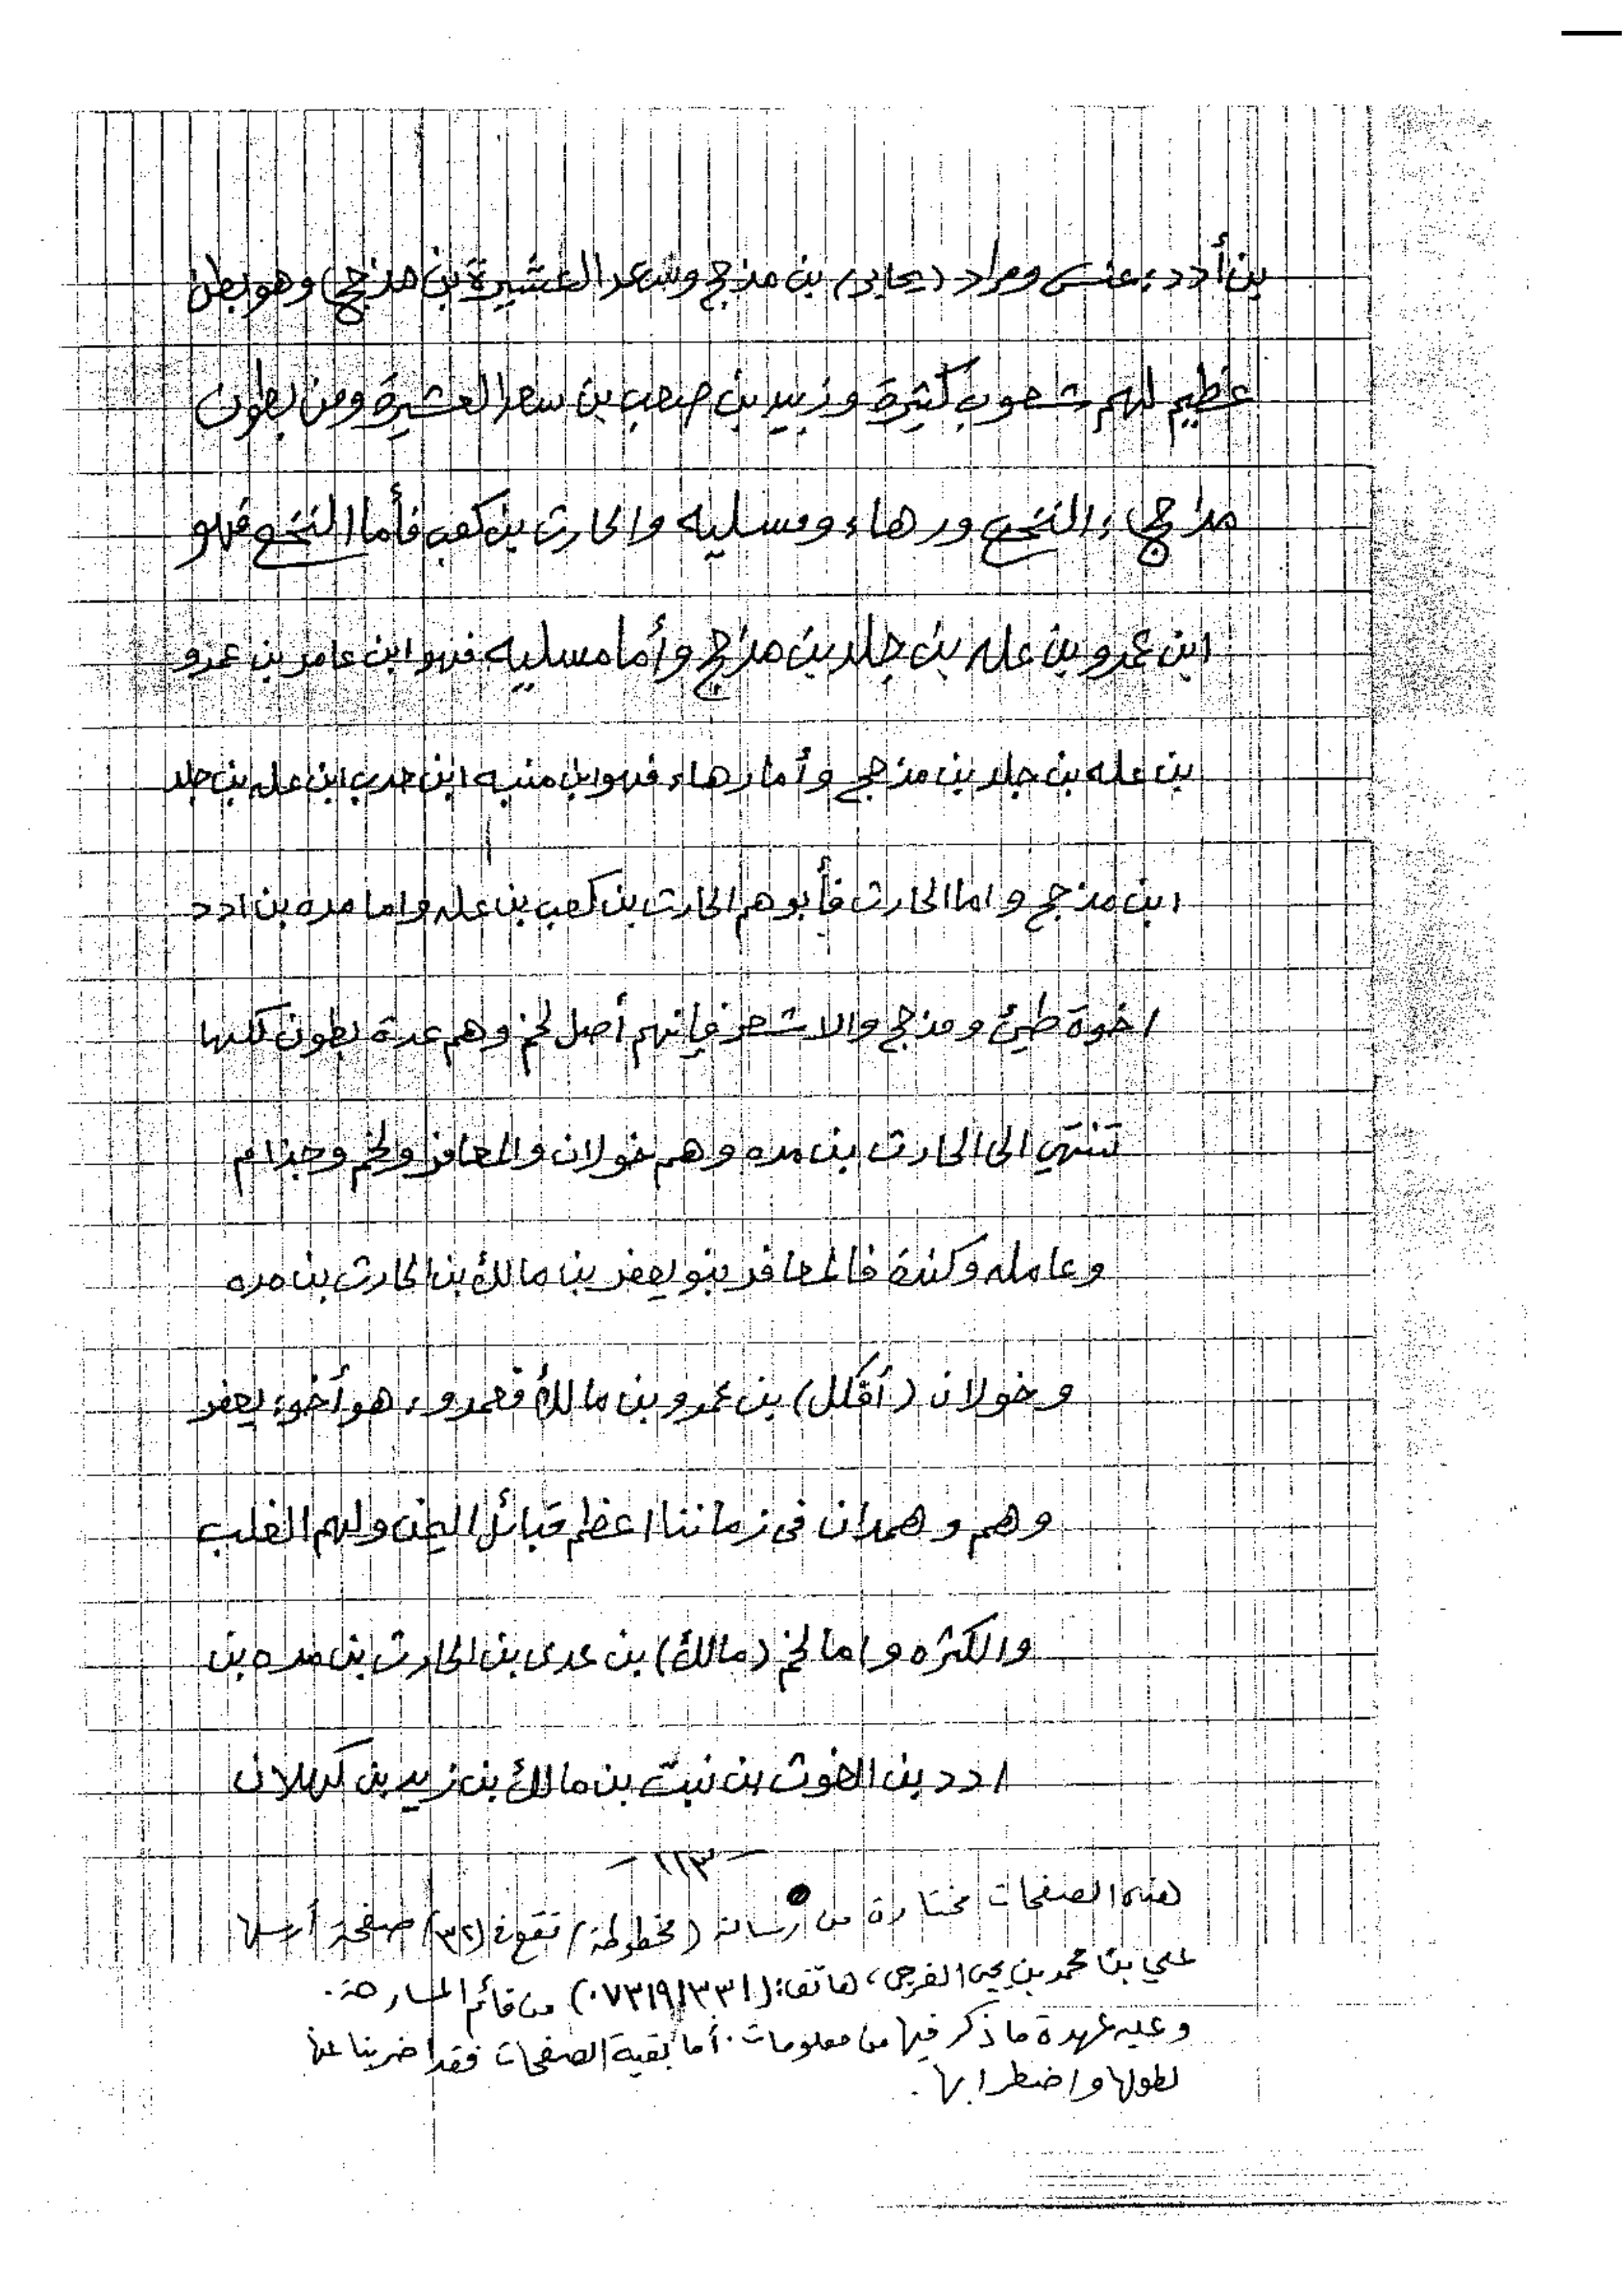 بن أدد : عنس ومراد (يحابر) بن مذحج وسعد العشيرة بن مذحج) وهو بطن
عظيم لهم شعوب كثيرة وزبيد بن صعب بن سعد العشيرة ومن بطون
مذحج : النخع ورهاء ومسليه والحارث بن كعب فأما النخع فهو
ابن عمرو بن عله بن جلد بن مذحج وأما مسليه فهو ابن عامر بن عمرو
بن عله بن جلد بن مذحج وأما رهاء فهو ابن منبه ابن حرب ابن عله بن جلد
ابن مذحج واما الحارث فأبوهم الحارث بن كعب بن عله واما مره بن ادد
اخوة طيئ ومذحج والاشعر فإنهم أصل لخم وهم عدة بطون كلها
تنتهي الى الحارث بن مره وهم خولان والمعافر ولخم وجذام
وعامله وكندة فالمعافر بنو يعفر بن مالك بن الحارث بن مره
وخولان (أفكل) بن عمرو بن مالك فعمرو، هو أخو، يعفر
وهم وهمدان فى زماننا اعظم قبائل اليمن ولهم الغلب
والكثره واما لخم (مالك) بن عدى بن الحارث بن مره بن
ادد بن الغوث بن نبت بن مالك بن زيد بن كهلان
- ١١٣ -
هذه الصفحات مختارة من رسالة (مخطوطة) تقع في (٣٢) صفحة أرسلها
علي بن محمد بن يحي الفرجي، هاتف: (٠٧٣١٩١٣٣١) من قائم المسارحة.
وعليه عهدة ما ذكر فيها من معلومات. أما بقية الصفحات فقد اضربنا عنها
لطولها واضطرابها.